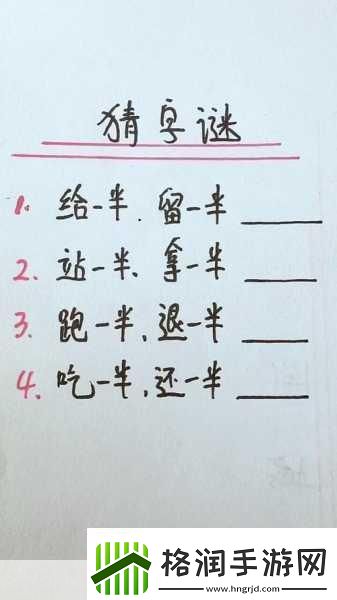 猜字谜
1. 给一半.留一半
2. 站一半、拿一半
3. 跑一半、退一半
4. 吃一半,还一半
格润手游网
www.hngrjd.com